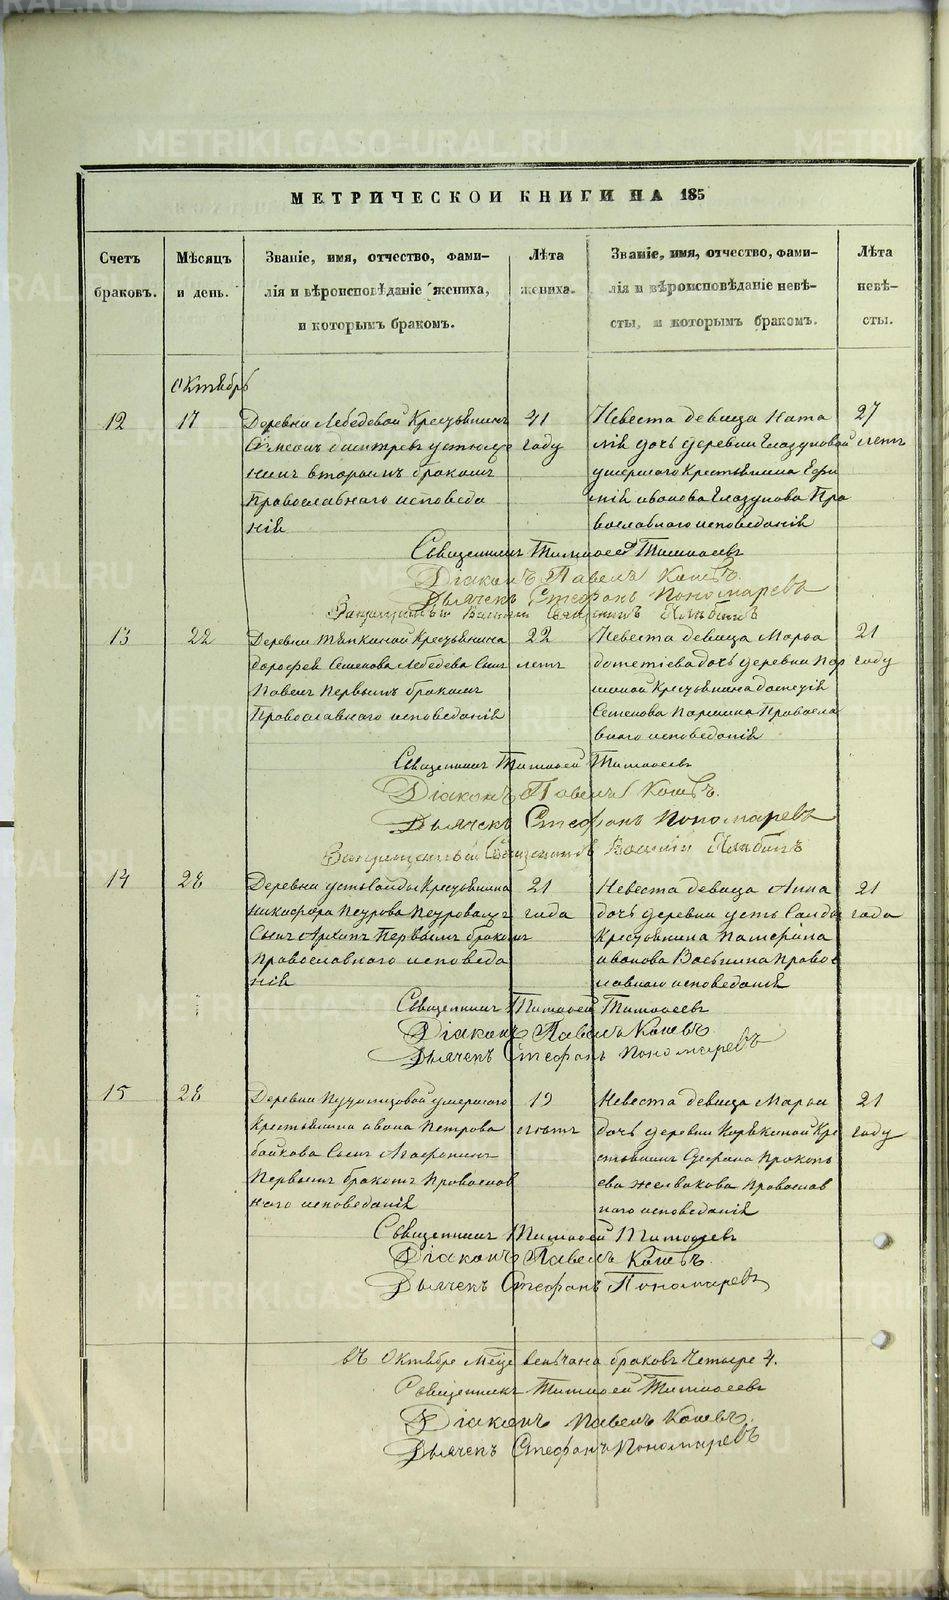 МЕТРИЧЕСКОЙ КНИГИ НА 185
Счетъ браковъ.
Мѣсяцъ и день.
Званіе, имя, отчество, фами-
лія и вѣроисповѣданіе жениха,
и которымъ бракомъ.
Лѣта жениха.
Званіе, имя, отчество, фами-
лія и вѣроисповѣданіе невѣ-
сты, и которымъ бракомъ.
Лѣта невѣ-
сты.
Октябрь
12
17
Деревни Лебедевой Крестьянинъ
вторымъ бракомъ
Православнаго исповеда
нія
41
году
Невеста девица Ната
лія дочь деревни Глазуновой
умершаго Крестьянина Ефи
мія иванова Глазунова Пра
вославнаго исповеданія
27
летъ
Священникъ Тимофей Тимофеевъ
Діаконъ Павелъ
Дьячекъ Стефанъ Пономаревъ
Запрещенный Василій Священникъ
13
22
Деревни Крестьянина
Дорофея Семенова Лебедева Сынъ
Павелъ Первымъ бракомъ
Православнаго исповеданія
22
летъ
Невеста девица Марья
дочь деревни Пар
шиной Крестьянина
Семенова Паршина Правосла
внаго исповеданія
21
году
Священникъ Тимофей Тимофеевъ
Діаконъ Павелъ
Дьячекъ Стефанъ Пономаревъ
Запрещенный Священникъ Василій
14
28
Деревни усть Саиды Крестьянина
Никифора Петрова
Сынъ Архипъ Первымъ бракомъ
Православнаго исповеда
нія
21
года
Невеста девица Анна
дочь деревни усть Саиды
Крестьянина
иванова Правос
лавнаго исповеданія
21
года
Священникъ Тимофей Тимофеевъ
Діаконъ Павелъ
Дьячекъ Стефанъ Пономаревъ
15
28
Деревни умершаго
Крестьянина ивана Петрова
Сынъ
Первымъ бракомъ Православ
наго исповеданія
19
летъ
Невеста девица Марья
дочь деревни Кре
стьянина Прокопь
ева Православ
наго исповеданія
21
году
Священникъ Тимофей Тимофеевъ
Діаконъ Павелъ
Дьячекъ Стефанъ Пономаревъ
въ Октябре м̃це венчано браковъ четыре 4.
Священникъ Тимофей Тимофеевъ
Діаконъ Павелъ
Дьячекъ Стефанъ Пономаревъ
METRIKI.GASO-URAL.RU